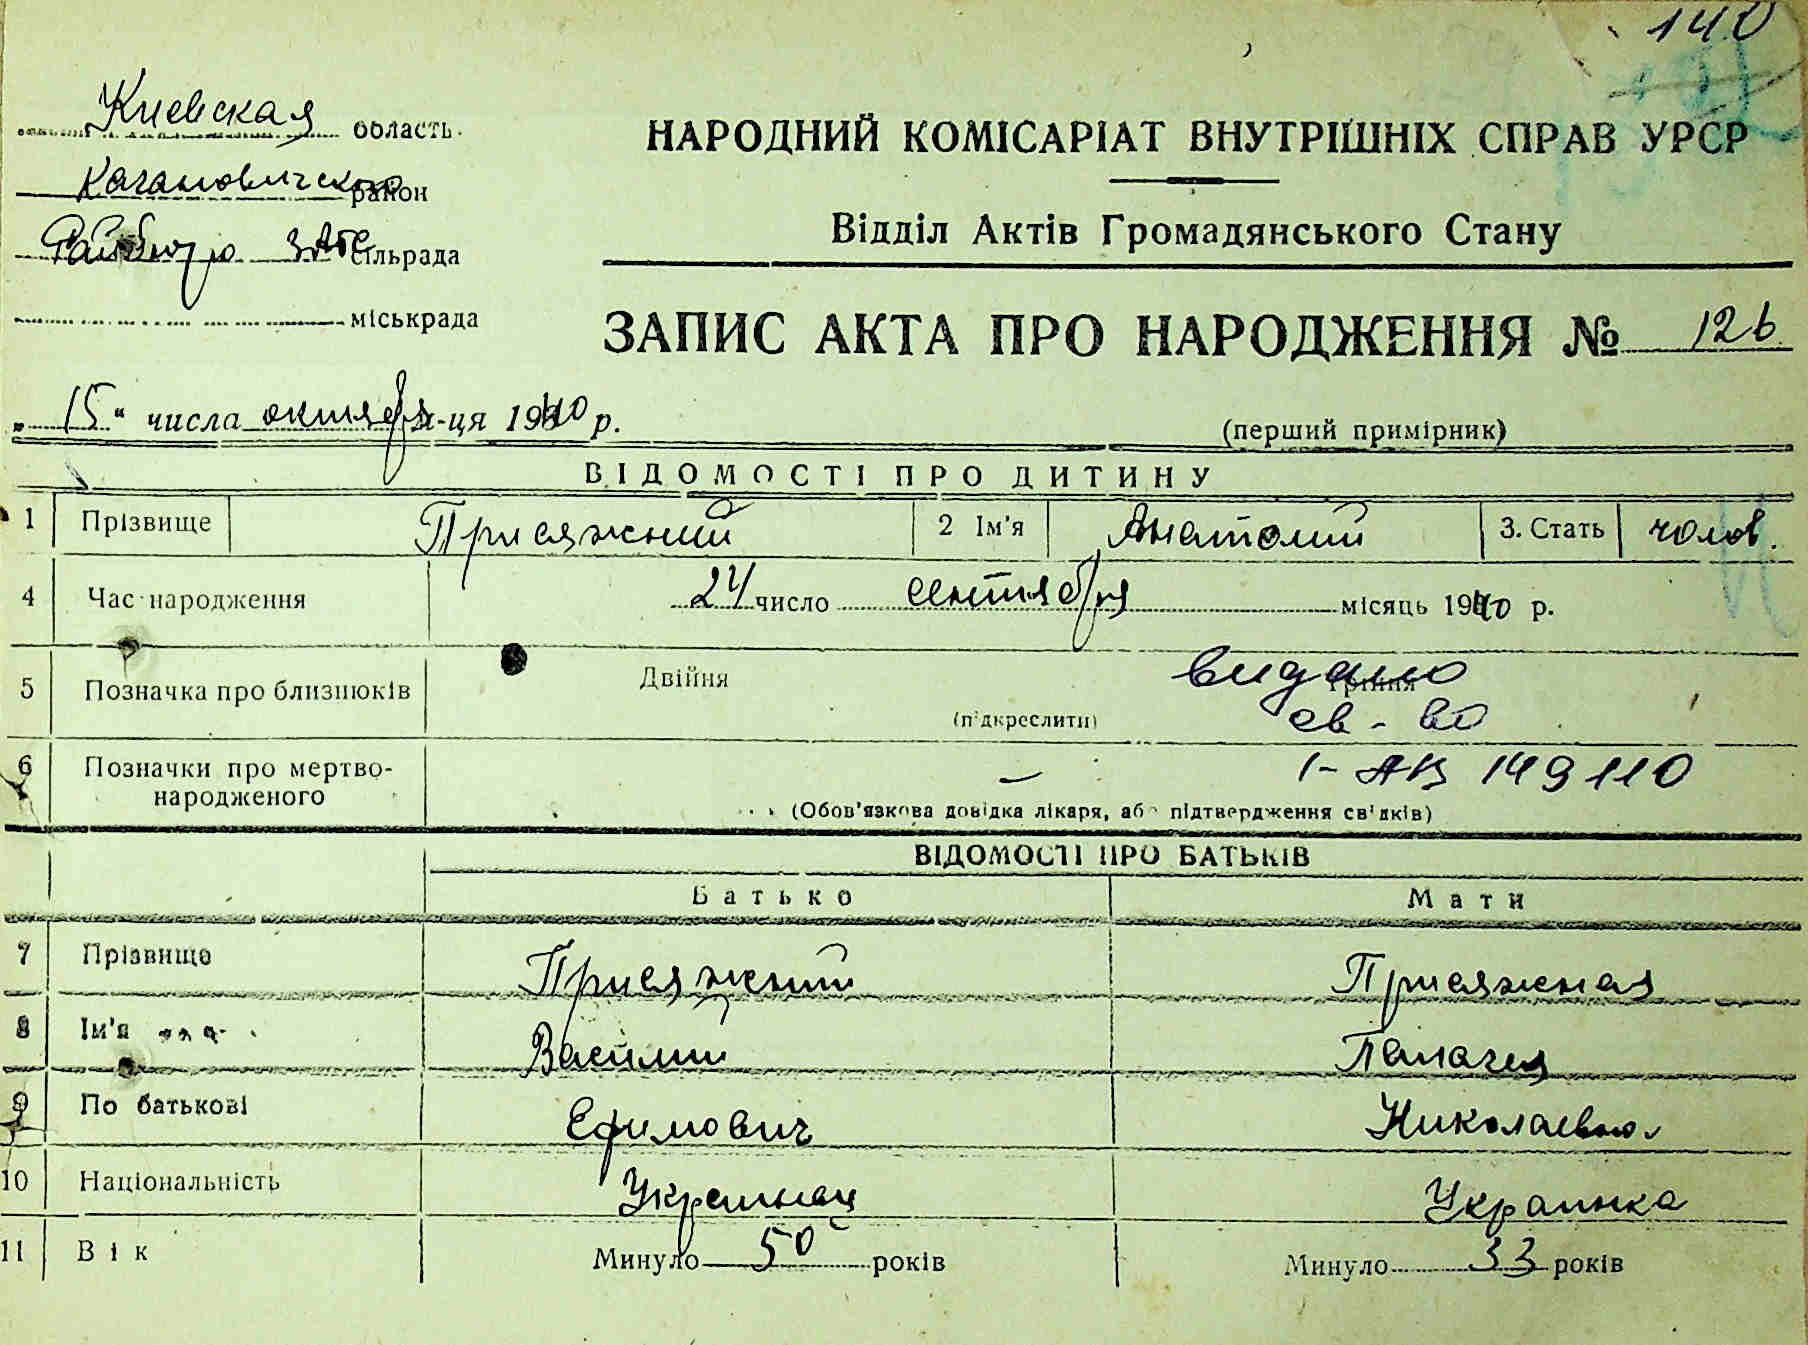 140
Киевская область
НАРОДНИЙ КОМІСАРІАТ ВНУТРІШНІХ СПРАВ УРСР
Кагановичского район
Відділ Актів Громадянського Стану
Райбюро ЗАГС сільрада
міськрада
ЗАПИС АКТА ПРО НАРОДЖЕННЯ № 126
„15" числа октября м-ця 1940 р.
(перший примірник)
ВІДОМОСТІ ПРО ДИТИНУ
1 Прізвище Присяжний 2 Ім'я Анатолий 3. Стать чолов.
4 Час народження 24 число сентября місяць 1940 р.
5 Позначка про близнюків Двійня Трійня
видано
(підкреслити) св-во
6 Позначки про мертво-
народженого — I-АК 149110
(Обов'язкова довідка лікаря, або підтвердження свідків)
ВІДОМОСТІ ПРО БАТЬКІВ
Батько Мати
7 Прізвище Присяжний Присяжная
8 Ім'я Василий Палагея
9 По батькові Ефимович Николаевна
10 Національність Украинец Украинка
11 Вік Минуло 50 років Минуло 33 років